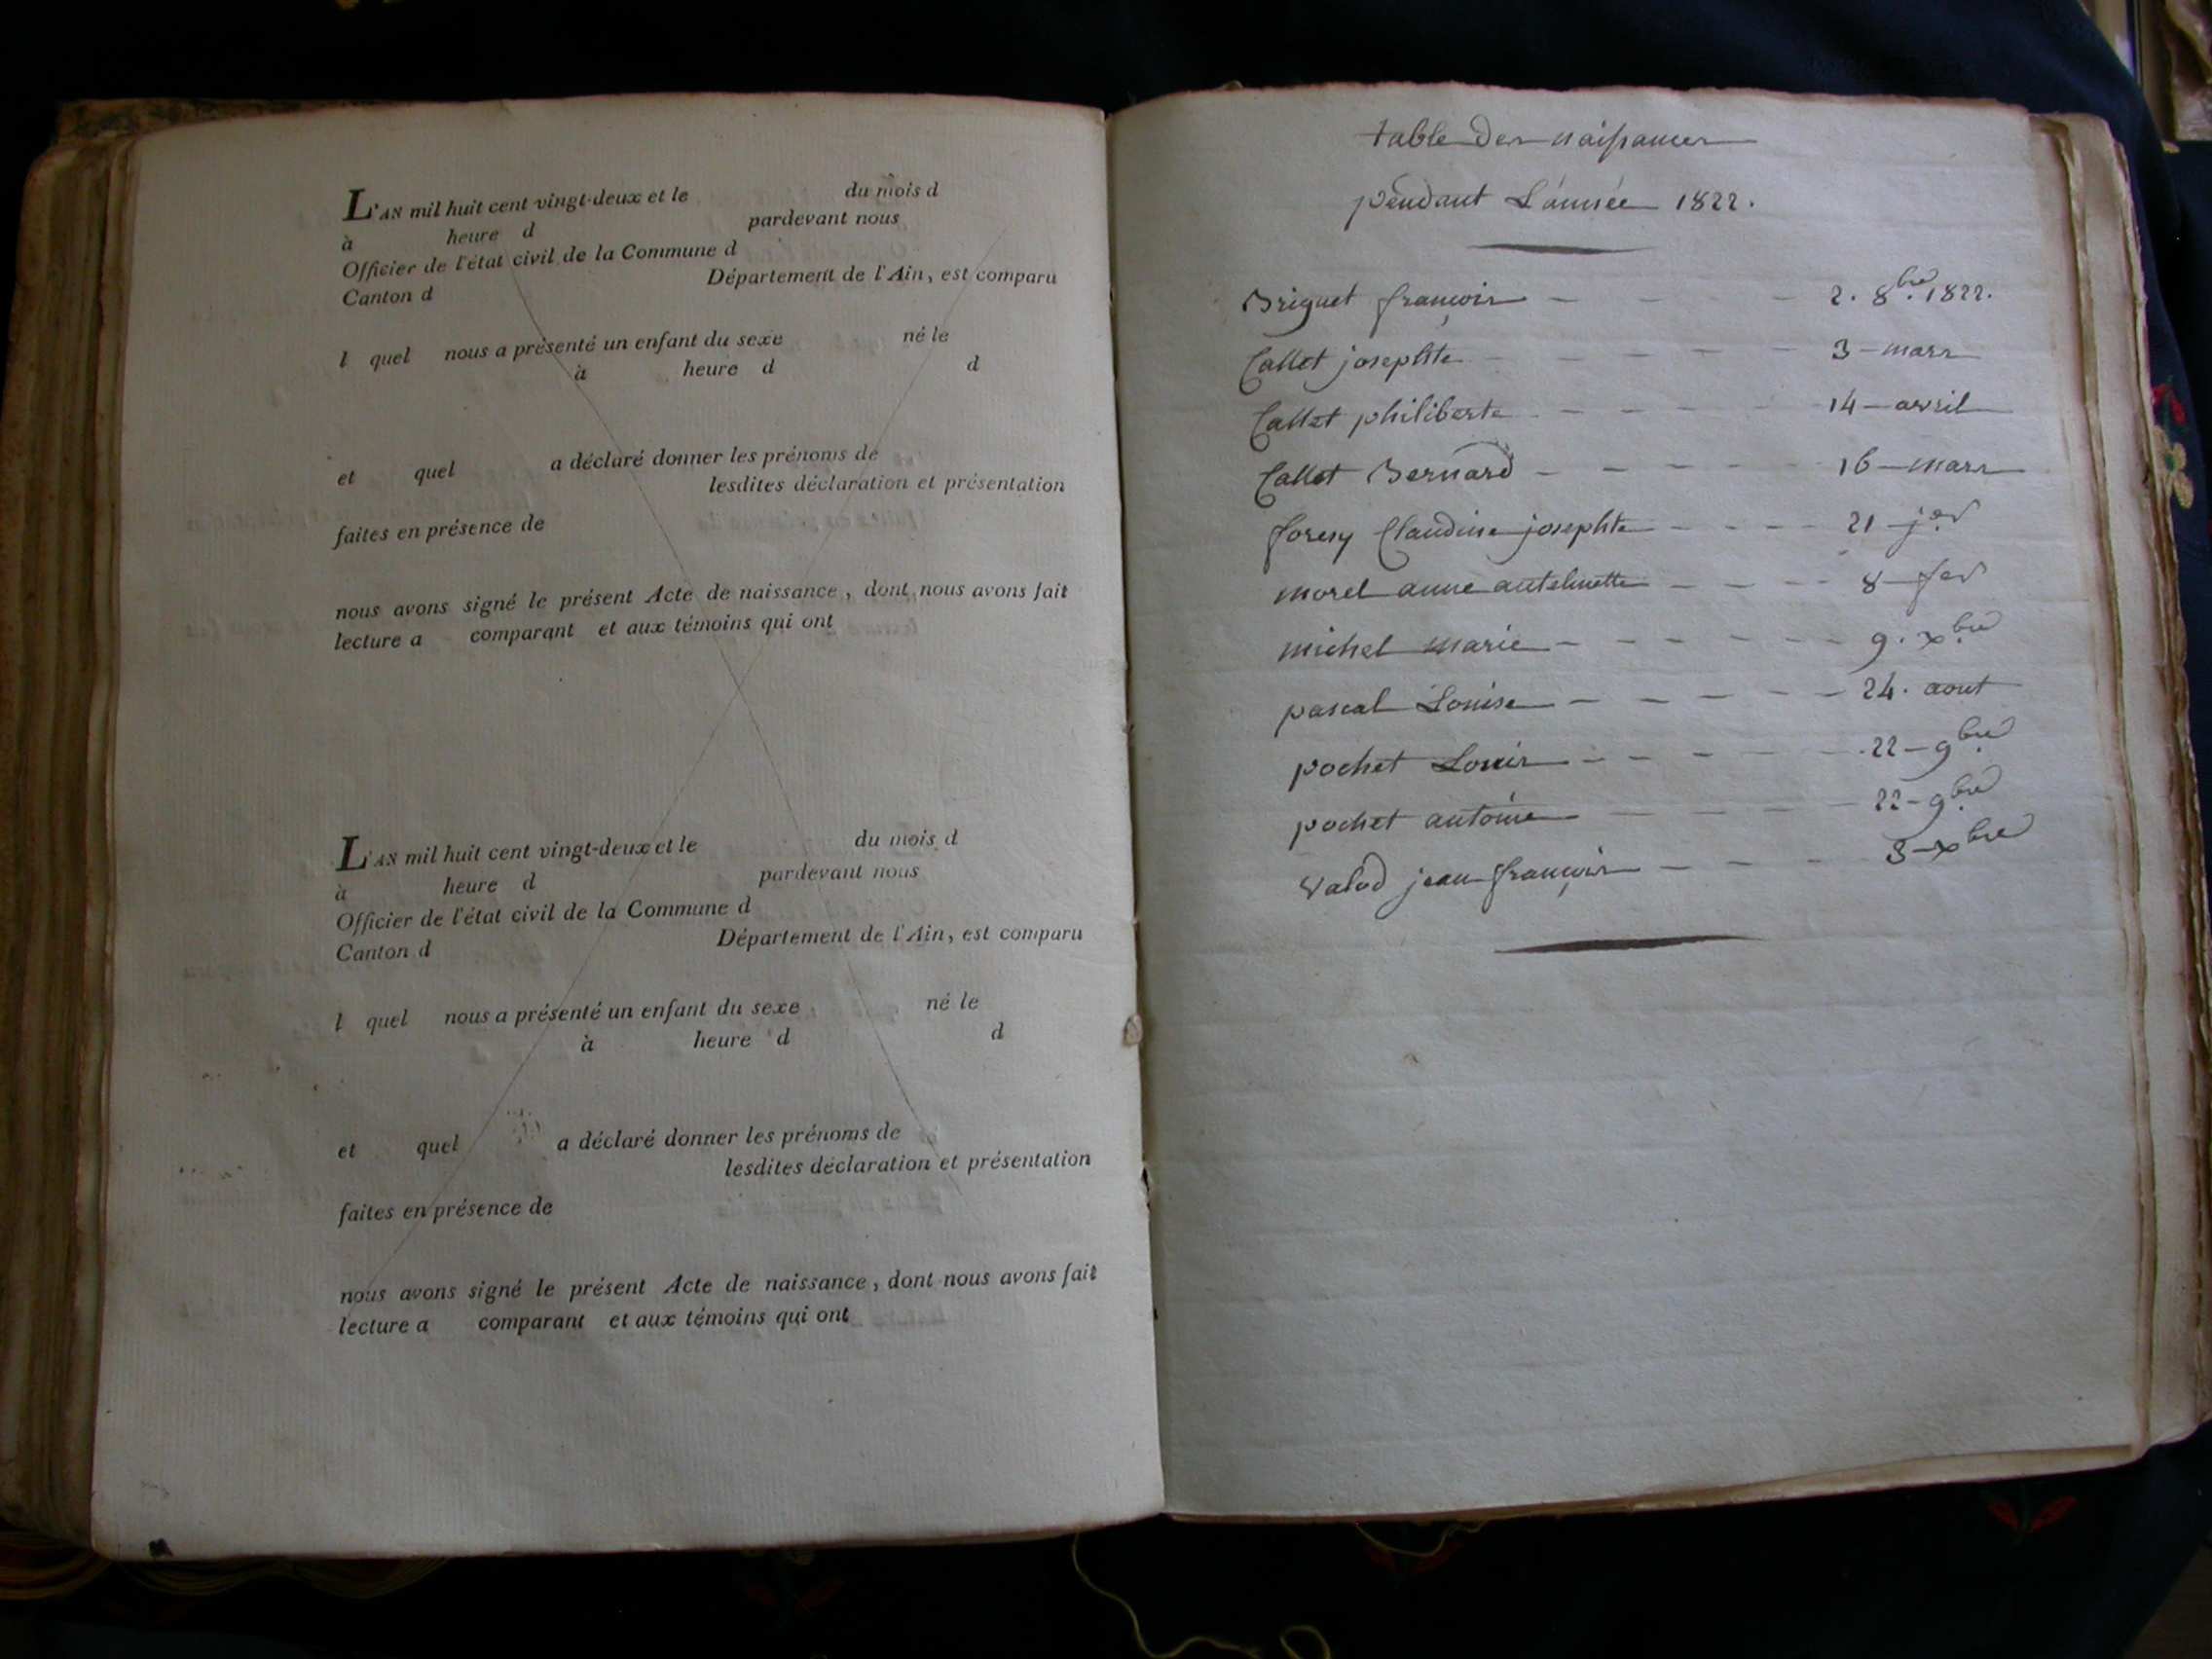 L'AN mil huit cent vingt-deux et le du mois d
à heure d pardevant nous
Officier de l'état civil de la Commune d
Canton d Département de l'Ain, est comparu
l quel nous a présenté un enfant du sexe né le
à heure d d
et quel a déclaré donner les prénoms de
lesdites déclaration et présentation
faites en présence de
nous avons signé le présent Acte de naissance, dont nous avons fait
lecture a comparant et aux témoins qui ont
L'AN mil huit cent vingt-deux et le du mois d
à heure d pardevant nous
Officier de l'état civil de la Commune d
Canton d Département de l'Ain, est comparu
l quel nous a présenté un enfant du sexe né le
à heure d d
et quel a déclaré donner les prénoms de
lesdites déclaration et présentation
faites en présence de
nous avons signé le présent Acte de naissance, dont nous avons fait
lecture a comparant et aux témoins qui ont
table Des naissances
pendant L'année 1822.
Briguet françois - - 2. 8bre. 1822.
Callet josephte - - - - - - 3 - mars
Callet philiberte - - - - - 14 - avril
Callet Bernard - - - - - 16 - mars
Claudine josephte - - - - 21 - jer
morel anne antelmette - - - - 8 - fer
michel marie - - - - - - 9. xbre
pascal Louise - - - - - - 24. aout
pochet Louis - - - - - 22 - 9bre
pochet antoine - - - - 22 - 9bre
Valod jean françois - - - - 3 - xbre